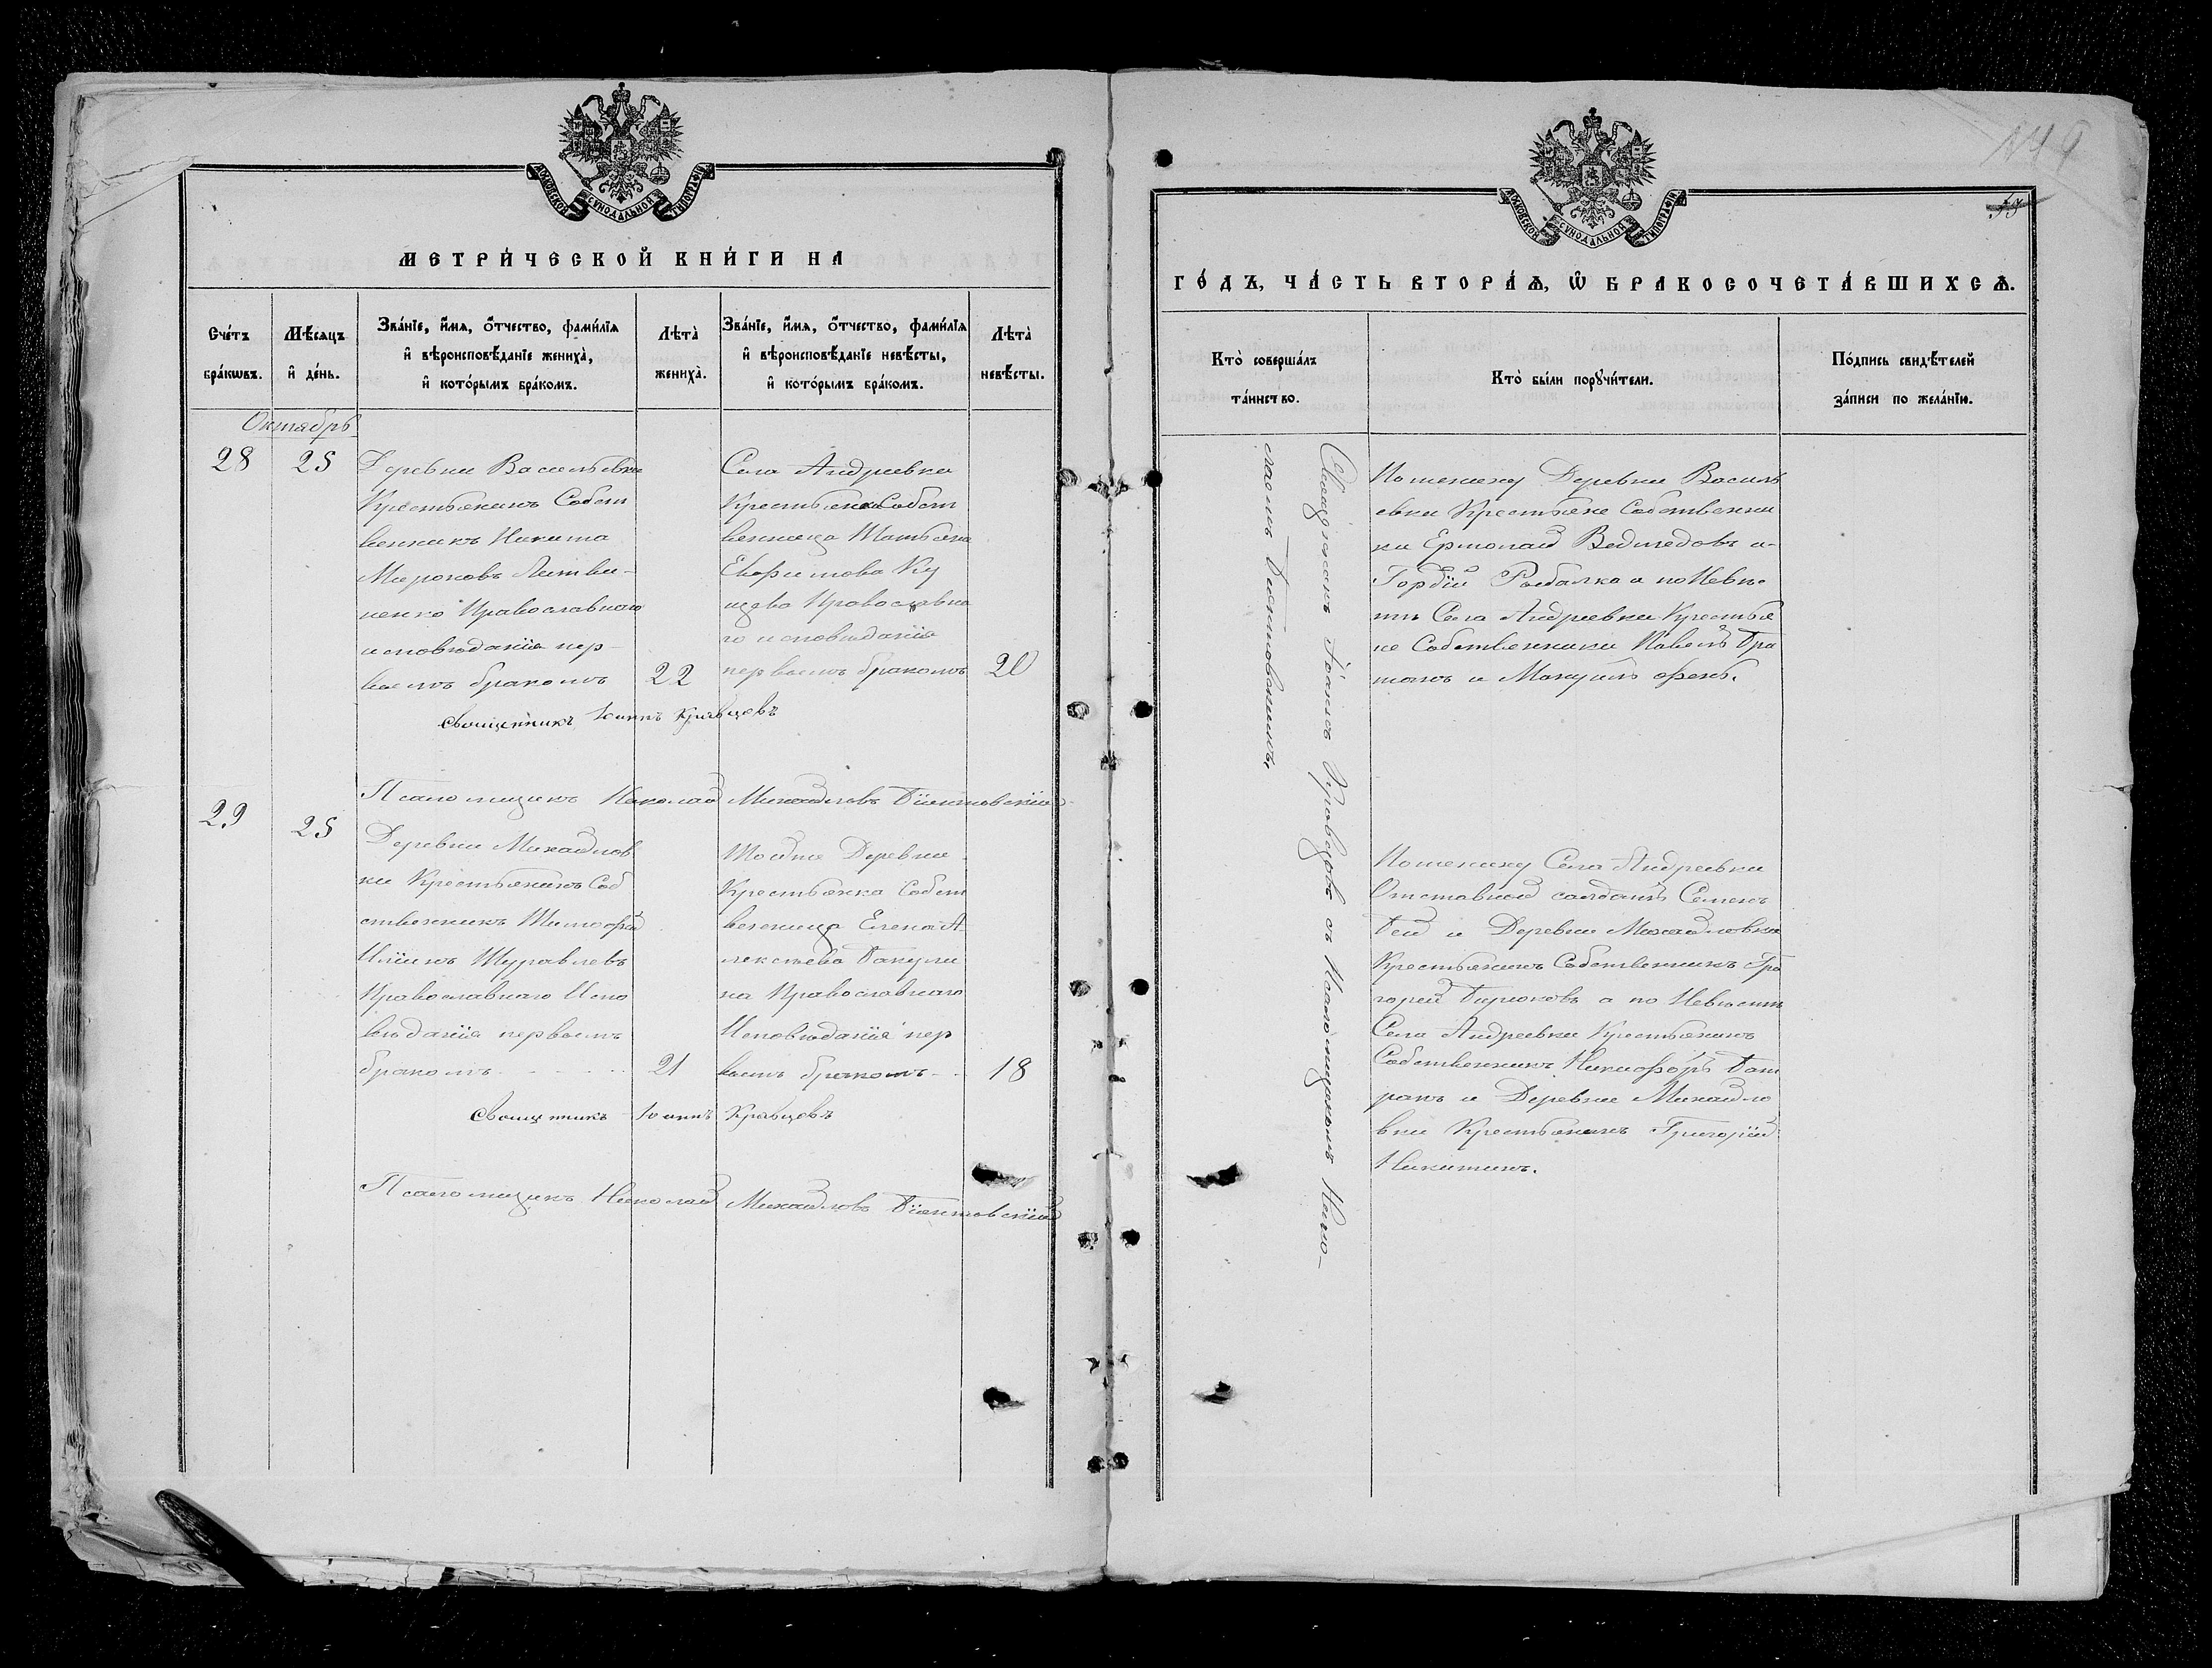 МОСКОВСКОЙ СѴНОДАЛЬНОЙ ТИПОГРАФІИ
МЕТРИ́ЧЕСКОЙ КНИ́ГИ НА
Сче́тъ бра́кѡвъ.
Мѣ́сяцъ и҆ де́нь.
Зва́нїе, и҆́мѧ, ѻ҆́тчество, фами́лїѧ
и҆ вѣроисповѣ́данїе жениха̀,
и҆ кото́рымъ бра́комъ.
Лѣта̀ жениха̀.
Зва́нїе, и҆́мѧ, ѻ҆́тчество, фами́лїѧ
и҆ вѣроисповѣ́данїе невѣ́сты,
и҆ кото́рымъ бра́комъ.
Лѣта̀ невѣ́сты.
Октябрь
28
25
Деревни Васильевки
Крестьянинъ Собст
венникъ Никита
Мироновъ Литви-
ненко Православнаго
исповѣданія пер-
вымъ бракомъ
22
Села Андреевки
Крестьянка Собст
венница Татьяна
Евфимова Ку
цева Православна
го исповѣданія
первымъ бракомъ
20
Священникъ Іоаннъ Кравцовъ
Псаломщикъ Николай Михайловъ Біантовскій
29
25
Деревни Михайлов
ки Крестьянинъ Соб
ственникъ Тимофей
Ильинъ Журавлевъ
Православнаго Испо
вѣданія первымъ
бракомъ
21
Тойже Деревни
Крестьянка Собст
венница Елена А
лексѣева Бакули
на Православнаго
Исповѣданія пер
вымъ бракомъ
18
Священникъ Іоаннъ Кравцовъ
Псаломщикъ Николай Михайловъ Біантовскій
149
53
МОСКОВСКОЙ СѴНОДАЛЬНОЙ ТИПОГРАФІИ
ГО́ДЪ, ЧА́СТЬ ВТОРА́Ѧ, Ѡ҆ БРАКОСОЧЕТА́ВШИХСѦ.
Кто̀ соверша́лъ та́инство.
Кто̀ бы́ли порꙋчи́тели.
По́дпись свидѣ́телей
за́писи по жела́нїи.
Священникъ Іоаннъ Кравцовъ съ Псаломщикомъ Нико-
лаемъ Біантовскимъ.
По жениху Деревни Василь
евки Крестьяне Собственни
ки Ермолай Ведмедовъ и
Гордѣй Рыбалка а по Невѣс
тѣ Села Андреевки Крестья
не Собственники Павелъ Бра
тынъ и Мануилъ Фень.
По жениху Села Андреевки
Отставной солдатъ Семенъ
Бей и Деревни Михайловки
Крестьянинъ Собственникъ Гри
горій Бирюковъ а по Невѣстѣ
Села Андреевки Крестьянинъ
Собственникъ Никифоръ Бат
ракъ и Деревни Михайло
вки Крестьянинъ Григорій
Никитинъ.